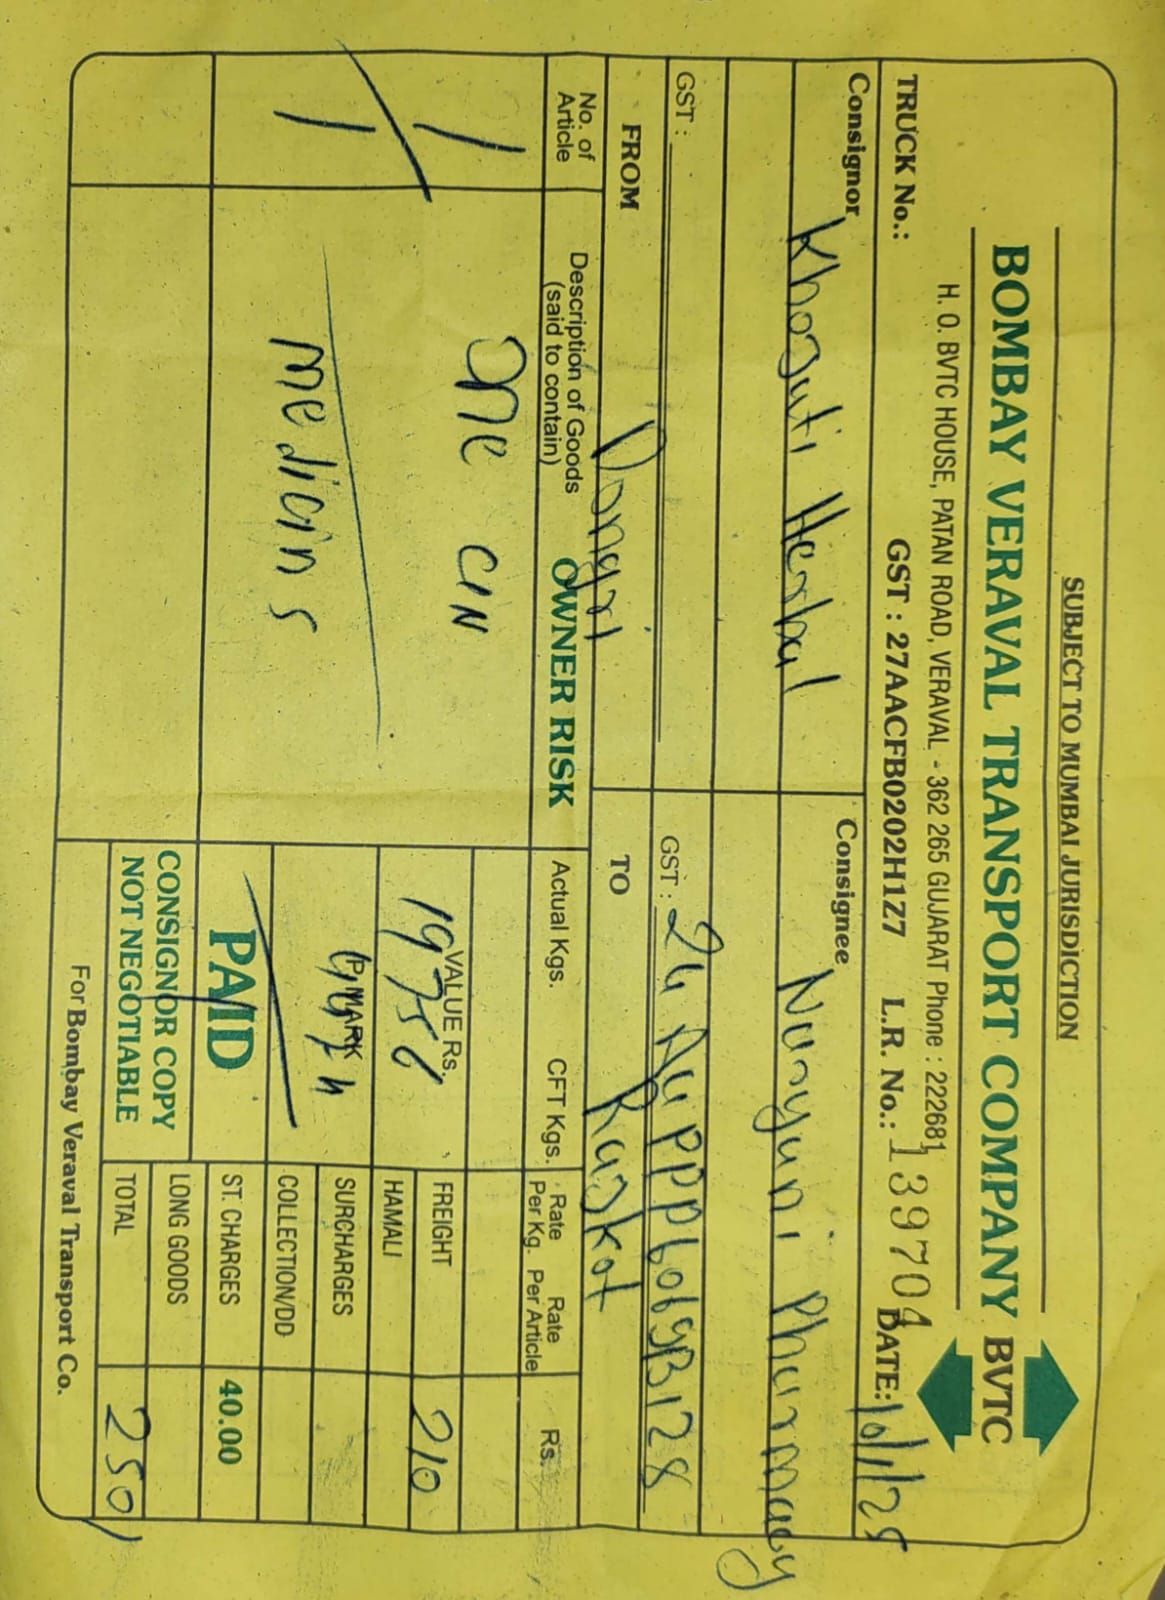 SUBJECT TO MUMBAI JURISDICTION
BOMBAY VERAVAL TRANSPORT COMPANY BVTC
H. O. BVTC HOUSE, PATAN ROAD, VERAVAL - 362 265 GUJARAT Phone : 222681
TRUCK No.: GST : 27AACFB0202H1Z7 L.R. No.: 139704 DATE: 10/1/25
Consignor Khojati Herbal
Consignee Narayani Pharmacy
GST :
GST :
FROM Dongri
TO Rajkot
No. of Article
Description of Goods (said to contain)
OWNER RISK
Actual Kgs. CFT Kgs. Rate Per Kg. Rate Per Article Rs.
1 one CIN
1
medicins
VALUE Rs.
19756
P. MARK
PAID
CONSIGNOR COPY
NOT NEGOTIABLE
FREIGHT 210
HAMALI
SURCHARGES
COLLECTION/DD
ST. CHARGES 40.00
LONG GOODS
TOTAL 250/
For Bombay Veraval Transport Co.